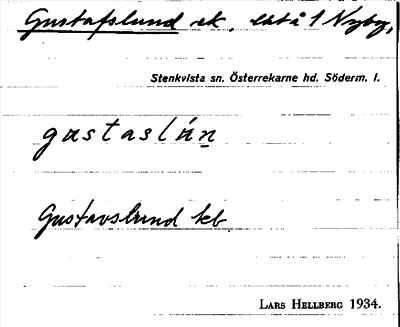 Gustafslund ek, extå 1 Nyby,
Stenkvista sn. Österrekarne hd. Söderm. l.
gustaslún
Gustavslund keb
LARS HELLBERG 1934.